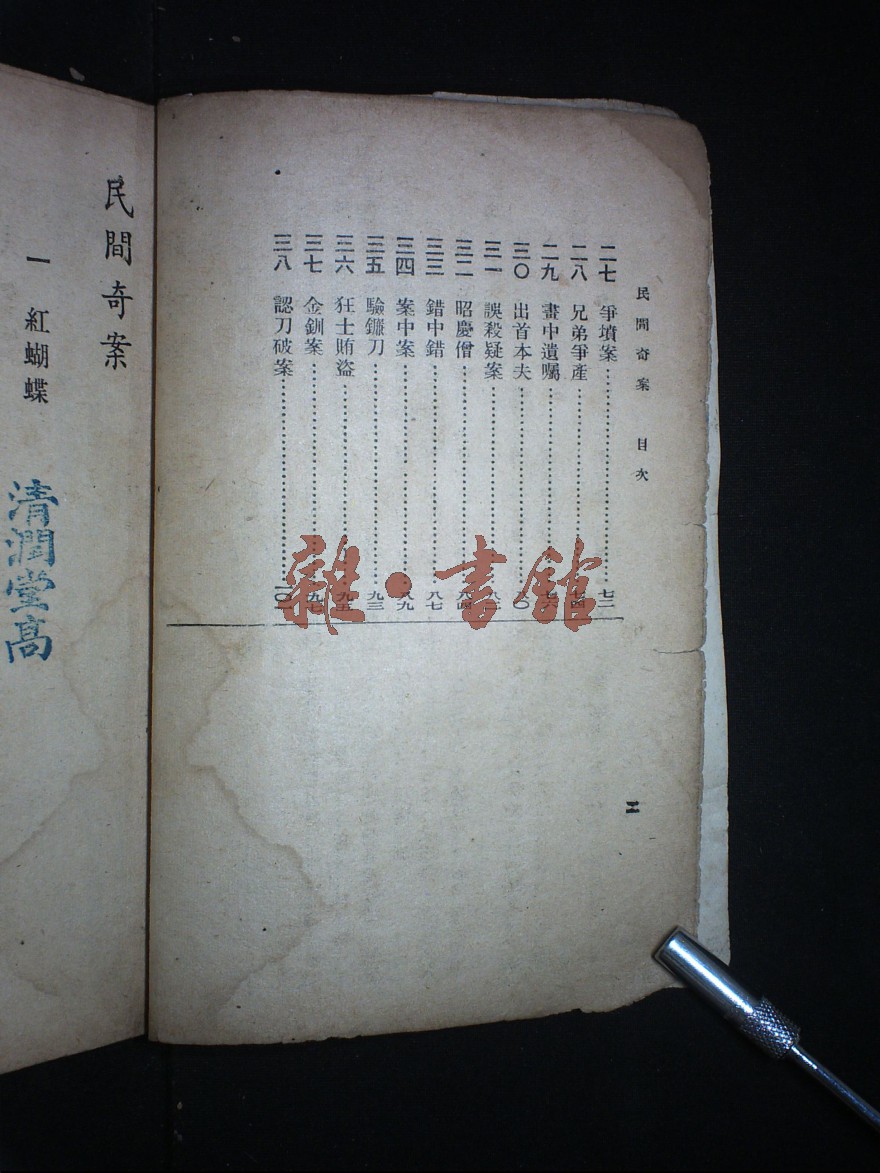 民間奇案 目次
二七 爭墳案 七二
二八 兄弟爭產 七四
二九 畫中遺囑 七六
三〇 出首本夫 八〇
三一 誤殺疑案 八二
三二 昭慶僧 八四
三三 錯中錯 八七
三四 案中案 八九
三五 驗鐮刀 九三
三六 狂士賄盜 九五
三七 金釧案 九七
三八 認刀破案 一〇一
二
雜·書館
民間奇案
一 紅蝴蝶
清潤堂高